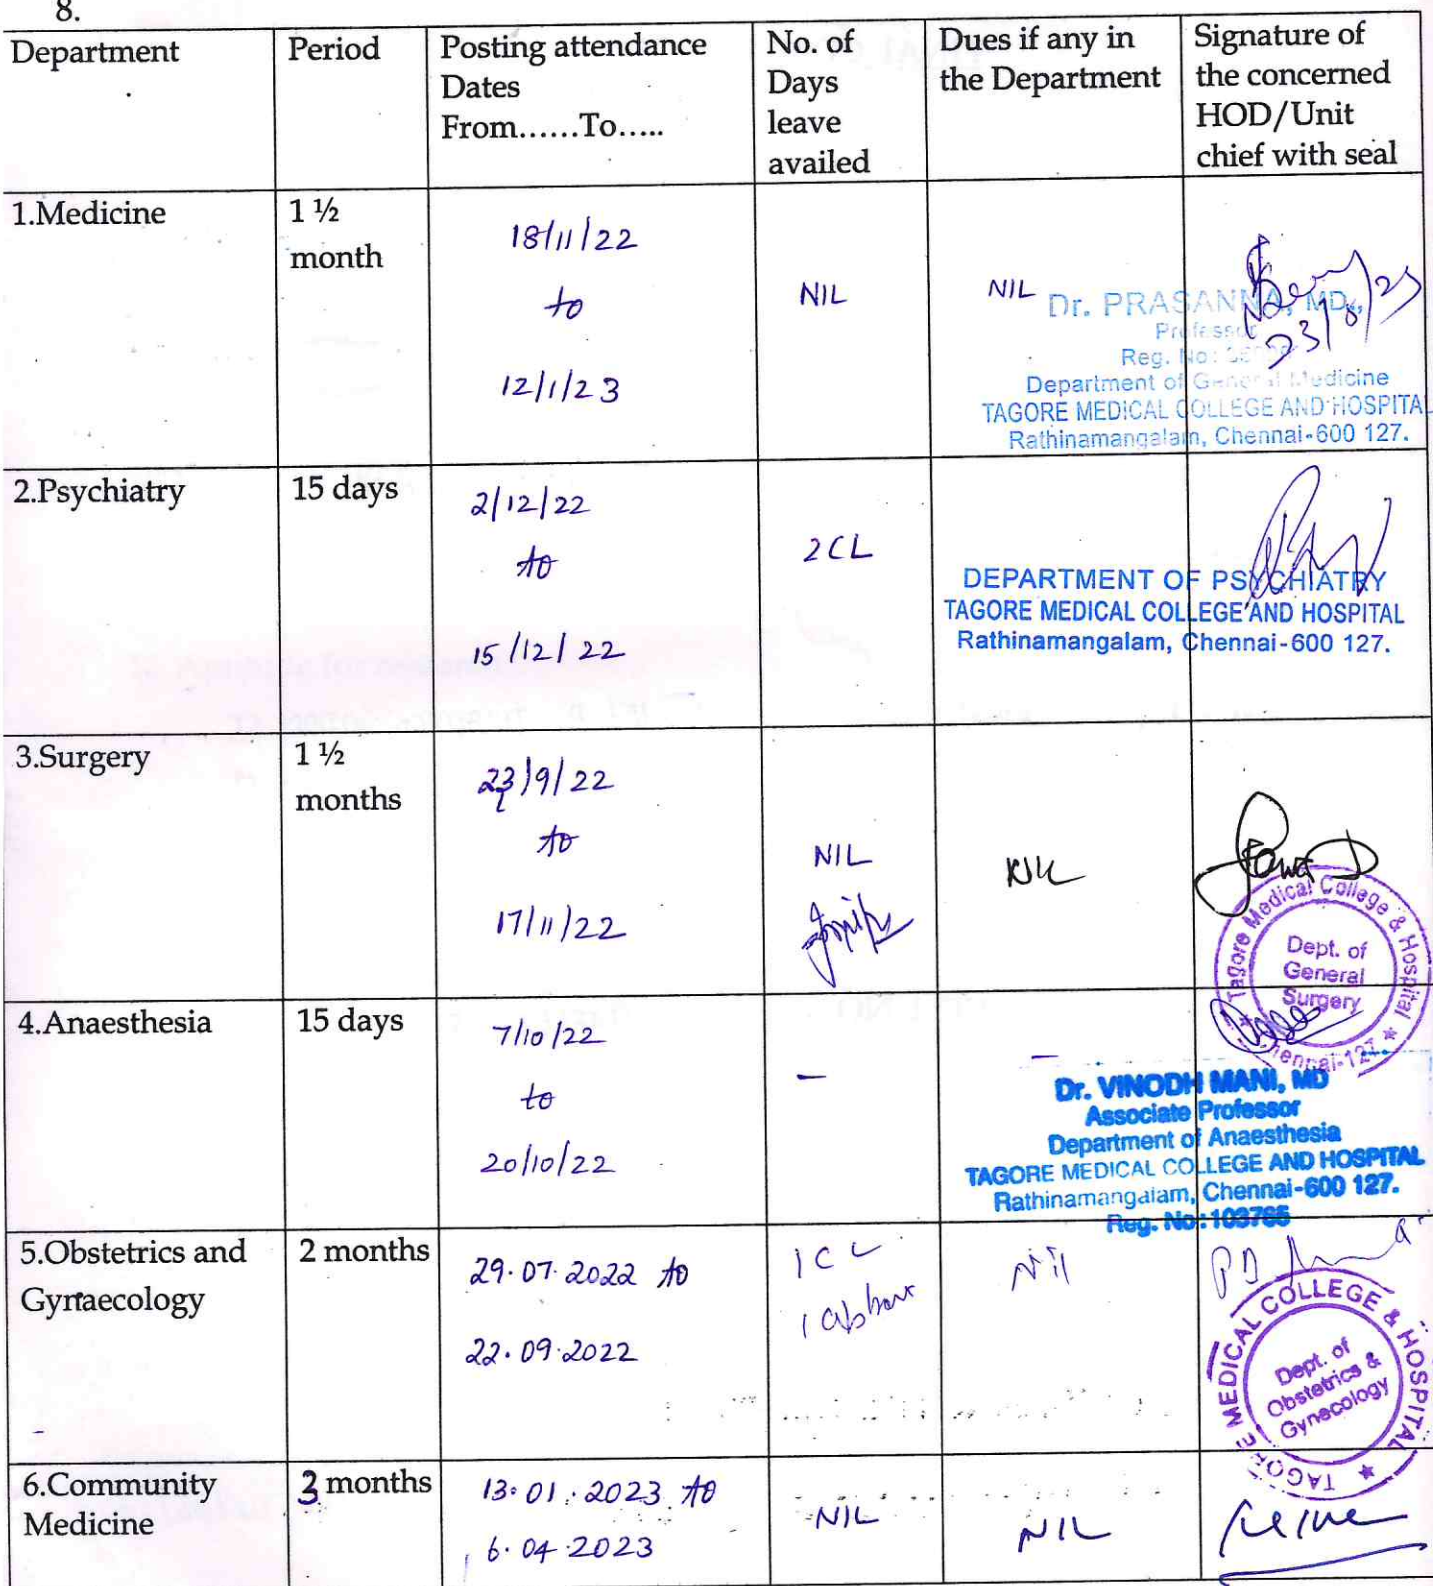 8.
Department
Period
Posting attendance
Dates
From......To.....
No. of
Days
leave
availed
Dues if any in
the Department
Signature of
the concerned
HOD/Unit
chief with seal
1.Medicine
1 ½
month
18/11/22
to
12/1/23
NIL
NIL
23/8/23
Dr. PRASANNA, MD.,
Professor
Reg. No:
Department of General Medicine
TAGORE MEDICAL COLLEGE AND HOSPITAL
Rathinamangalam, Chennai-600 127.
2.Psychiatry
15 days
2/12/22
to
15/12/22
2CL
DEPARTMENT OF PSYCHIATRY
TAGORE MEDICAL COLLEGE AND HOSPITAL
Rathinamangalam, Chennai-600 127.
3.Surgery
1 ½
months
23/9/22
to
17/11/22
NIL
NIL
Tagore Medical College & Hospital
Chennai-127
Dept. of
General
Surgery
4.Anaesthesia
15 days
7/10/22
to
20/10/22
-
-
Dr. VINODH MANI, MD
Associate Professor
Department of Anaesthesia
TAGORE MEDICAL COLLEGE AND HOSPITAL
Rathinamangalam, Chennai-600 127.
Reg. No: 103765
5.Obstetrics and
Gynaecology
2 months
29.07.2022 to
22.09.2022
1 CL
1 absent
Nil
TAGORE MEDICAL COLLEGE & HOSPITAL
Dept. of
Obstetrics &
Gynecology
6.Community
Medicine
3 months
13.01.2023 to
6.04.2023
NIL
NIL